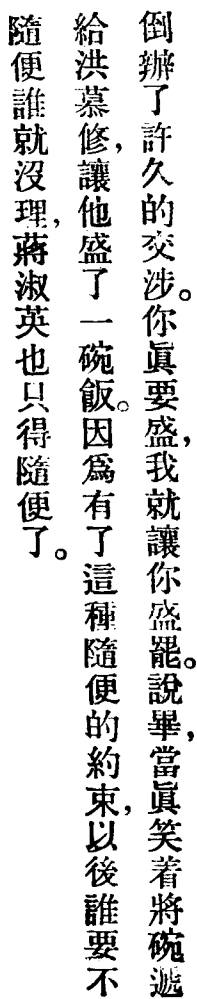 倒辦了許久的交涉。你眞要盛，我就讓你盛罷。說畢，當眞笑着將碗遞
給洪慕修，讓他盛了一碗飯。因爲有了這種隨便的約束，以後誰要不
隨便誰就沒理，蔣淑英也只得隨便了。